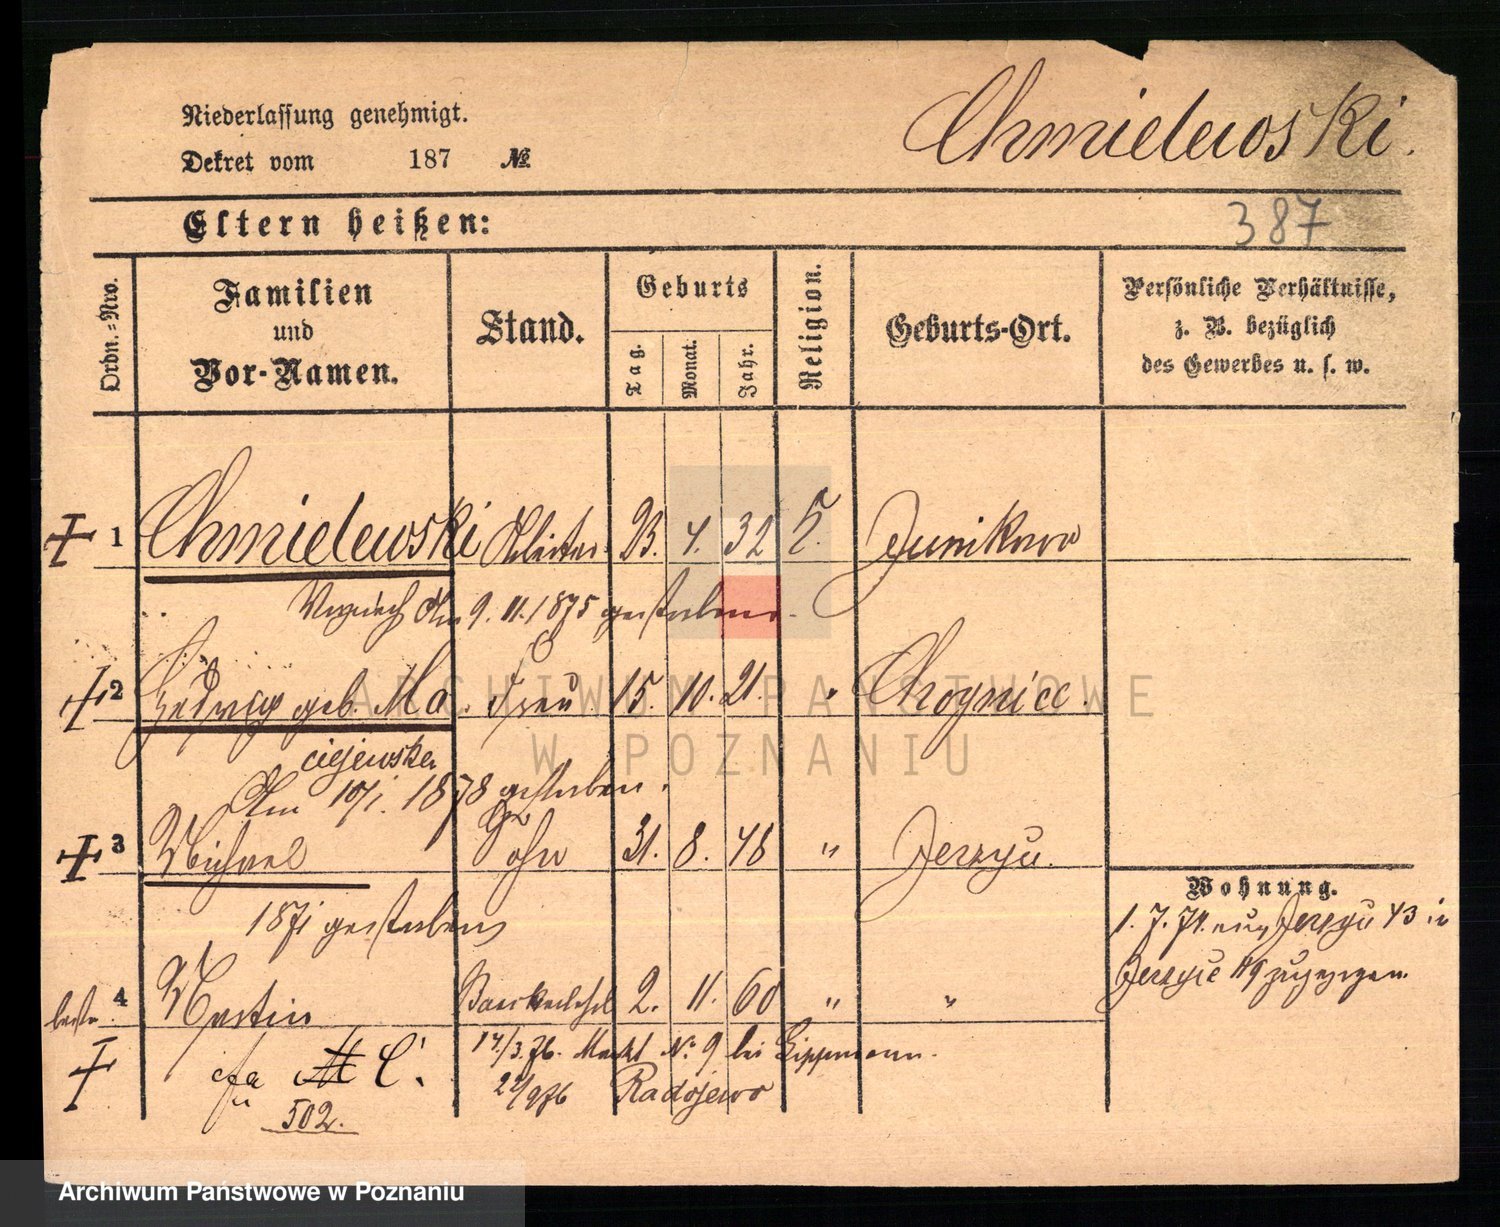 Niederlassung genehmigt.
Chmielewski.
Dekret vom 187 №
Eltern heißen:
387
Ordn.-Nro.
Familien und Vor-Namen.
Stand.
Geburts
Tag.
Monat.
Jahr.
Religion.
Geburts-Ort.
Persönliche Verhältnisse,
z. B. bezüglich
des Gewerbes u. s. w.
1 Chmielewski 23. 4. 32 Junikowo
9. 11. 1875 gestorben.
2 Hedwig geb. Ma- Frau 15. 10. 21. "
ciejewska
Am 10/1. 1878 gestorben.
3 Michael Sohn 31. 8. 48 " Jerzyce.
1871 gestorben
Wohnung.
1. 7. 74. aus Jerzyce 43 in
Jerzyce 119 zugezogen.
4 Martin 2. 11. 60 " "
17./3. 76. Markt № 9 bei Lippmann.
C.
Radojewo
502.
ARCHIWUM PAŃSTWOWE
W POZNANIU
Archiwum Państwowe w Poznaniu